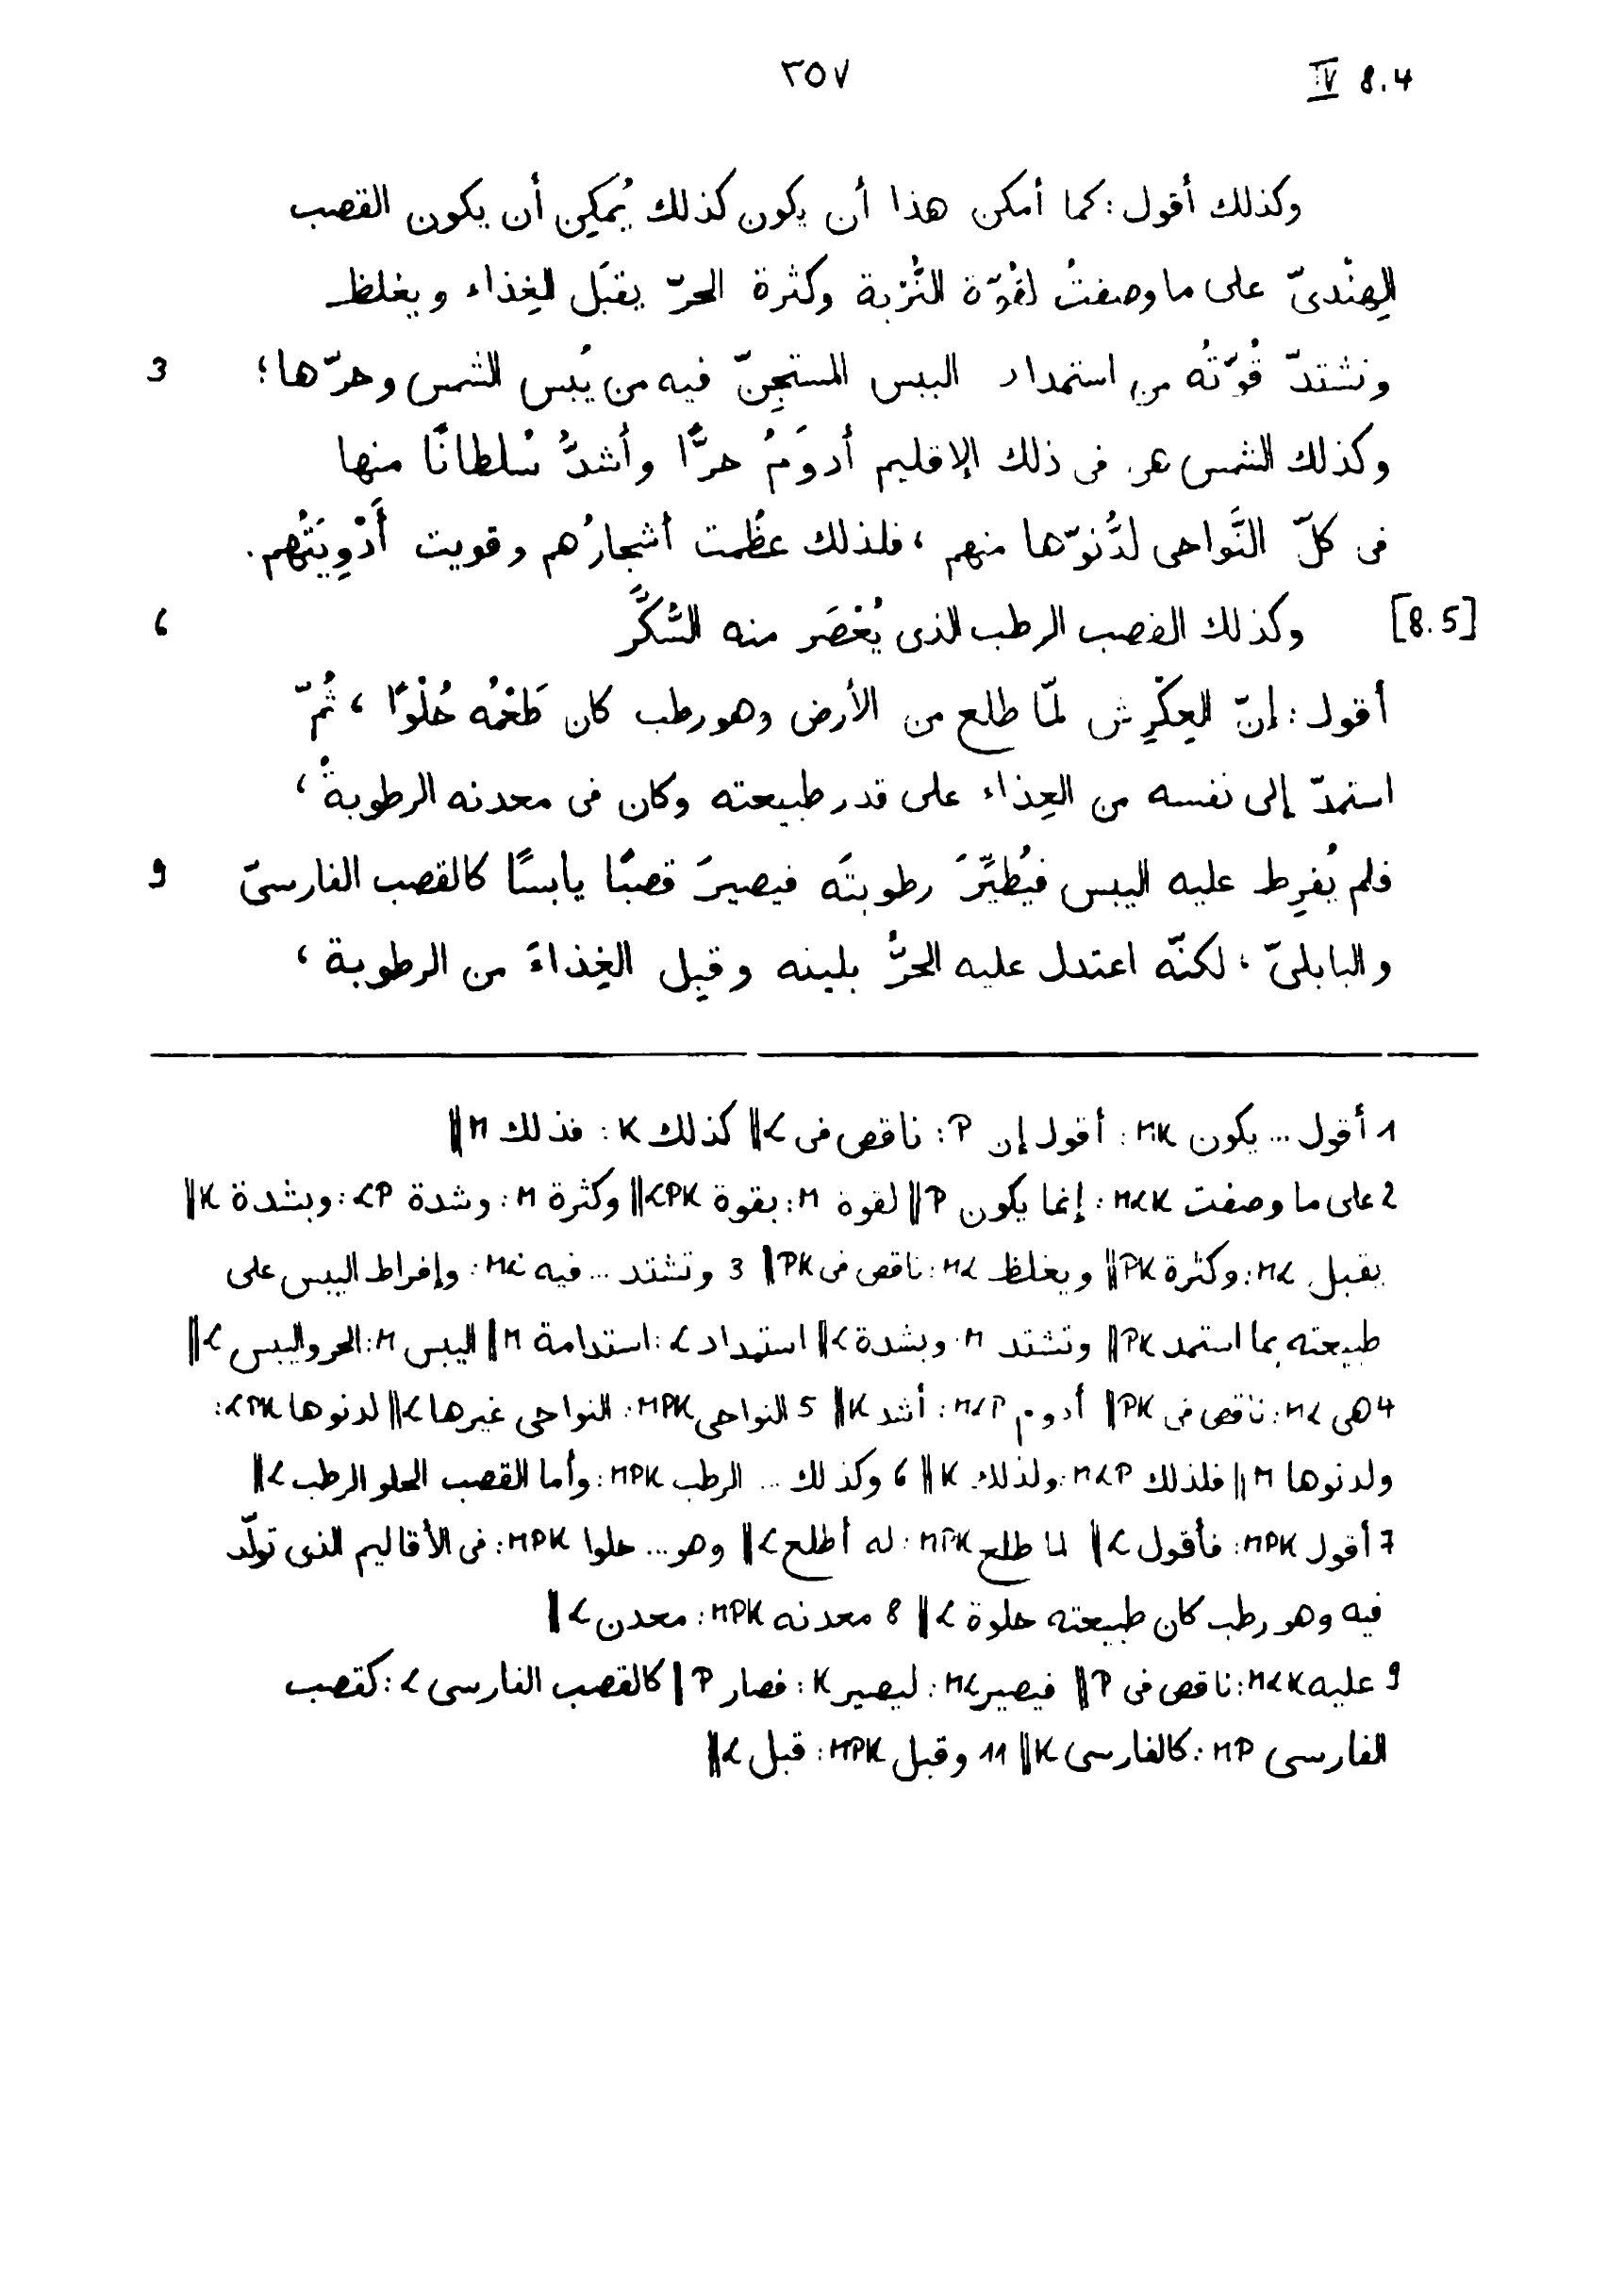 ٣٥٧ IV 8.4
وكذلك أقول: كما أمكن هذا أن يكون كذلك يُمكِن أن يكون القصب
الهِنْدىّ على ما وصفتُ لقُوّة التُّرْبة وكثرة الحرّ يقبَل الغِذاء ويغلظ
وتشتدّ قُوّتُه من استمداد اليبس المستجِنّ فيه من يُبس الشمس وحرّها؛ 3
وكذلك الشمس هى فى ذلك الإقليم أدوَمُ حرًّا وأشدُّ سُلطانًا منها
فى كلّ النَّواحى لدُنوّها منهم، فلذلك عظُمت أشجارُهم وقويت أَدْوِيَتُهم.
[8.5] وكذلك القصب الرطب الذى يُعْصَر منه السُّكَّر 6
أقول: إنّ العِكْرِش لمّا طلع من الأرض وهو رطب كان طَعْمُه حُلْوًا، ثُمّ
استمدّ إلى نفسه من الغِذاء على قدر طبيعته وكان فى معدنه الرطوبةُ،
فلم يُفرِط عليه اليبس فيُطيِّرَ رطوبتَه فيصيرَ قصبًا يابسًا كالقصب الفارسىّ 9
والبابلىّ، لكنّه اعتدل عليه الحرُّ بلينه وقبِل الغِذاءَ من الرطوبة،
1 أقول … يكون MK: أقول إن P: ناقص فى L‖ كذلك K: فذلك M‖
2 على ما وصفت MLK: إنما يكون P‖ لقوة M: بقوة LPK‖ وكثرة M: وشدة LP: وبشدة K‖
يقبل ML: وكثرة PK‖ ويغلظ ML: ناقص فى PK‖ 3 وتشتد … فيه ML: وإفراط اليبس على
طبيعته بما استمد PK‖ وتشتد M: وبشدة L‖ استمداد L: استدامة M‖ اليبس M: الحر واليبس L‖
4 هى ML: ناقص فى PK‖ أدوم MLP: أشد K‖ 5 النواحى MPK: النواحى غيرها L‖ لدنوها LPK:
ولدنوها M‖ فلذلك MLP: ولذلك K‖ 6 وكذلك … الرطب MPK: وأما القصب الحلو الرطب L‖
7 أقول MPK: فأقول L‖ لما طلع MPK: له أطلع L‖ وهو … حلوا MPK: فى الأقاليم الذى تولّد
فيه وهو رطب كان طبيعته حلوة L‖ 8 معدنه MPK: معدن L‖
9 عليه MLK: ناقص فى P‖ فيصير ML: ليصير K: فصار P‖ كالقصب الفارسى L: كقصب
الفارسى MP: كالفارسى K‖ 11 وقبل MPK: قبل L‖